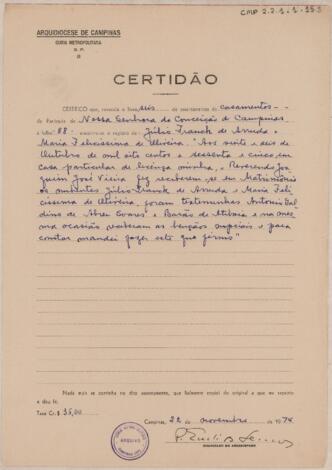 CMP 2.2.1.1-153
ARQUIDIOCESE DE CAMPINAS
CURIA METROPOLITANA
CERTIDÃO
CERTIFICO que, revendo o livro seis de assentamentos de casamentos --
da Paroquia de Nossa Senhora da Conceição de Campinas
à folha 88 encontrei o registro de Júlio Franck de Arruda e
Maria Felicissima de Oliveira: "Aos vinte e seis de
Outubro de mil oito centos e sessenta e cinco, em
casa particular de licença minha, o Reverendo Joa
quim José Vieira fez receberem-se em Matrimonio
os nubentes Júlio Franck de Arruda e Maria Feli
cissima de Oliveira, foram testemunhas Antonio Bal
dino de Abreu Soares e Barão de Atibaia e na mes
ma ocasião receberam as benções nupciais e para
constar mandei fazer este que firmo"
Nada mais se continha no dito assentamento, que fielmente copiei do original a que me reporto
e dou fé.
Taxa Cr.$ 35,00
Campinas, 22 de novembro de 1974
ARQUIVO